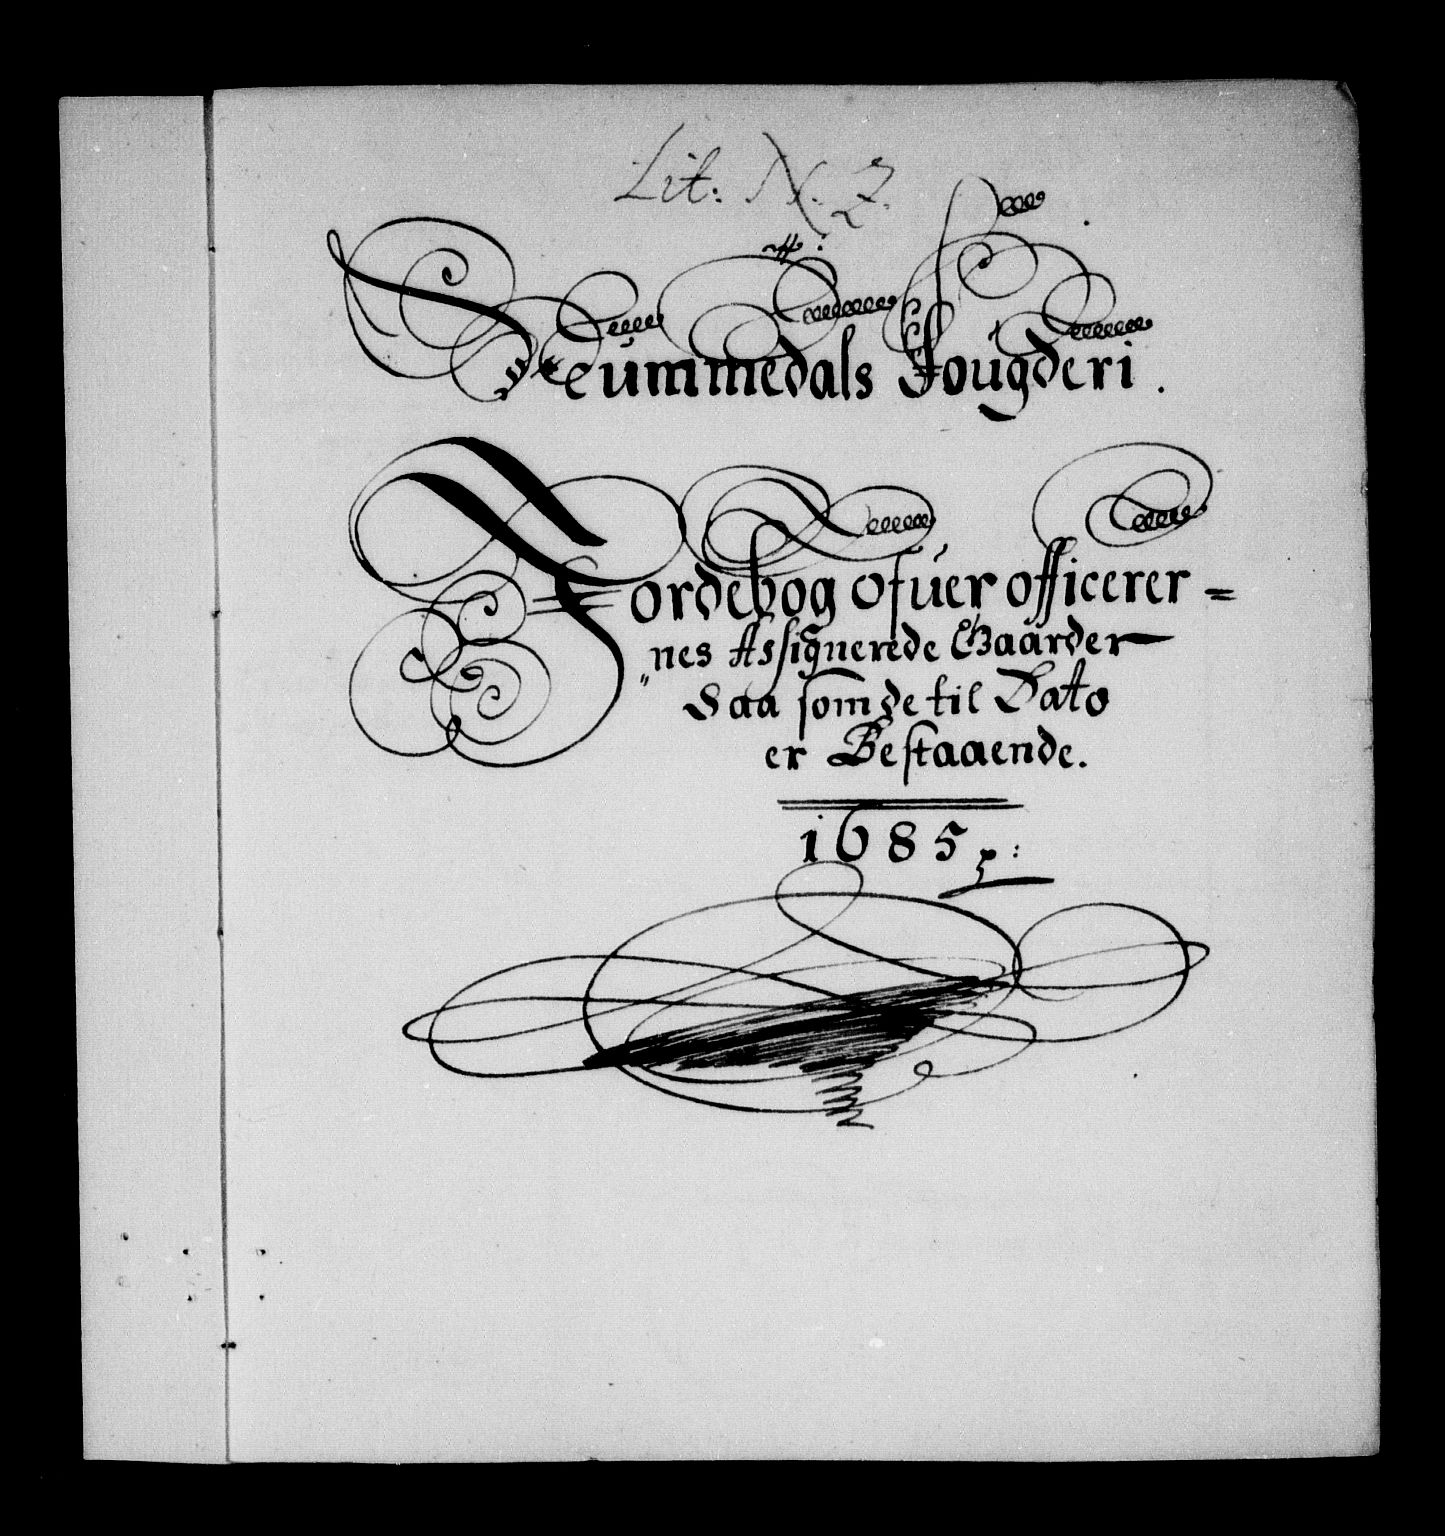 Lit: N. 2.
Neümmedals Fougderi.
Jordebog ofuer officerer=
nes Assignerede Gaarder
Saa som de til Dato
er Bestaaende.
1685